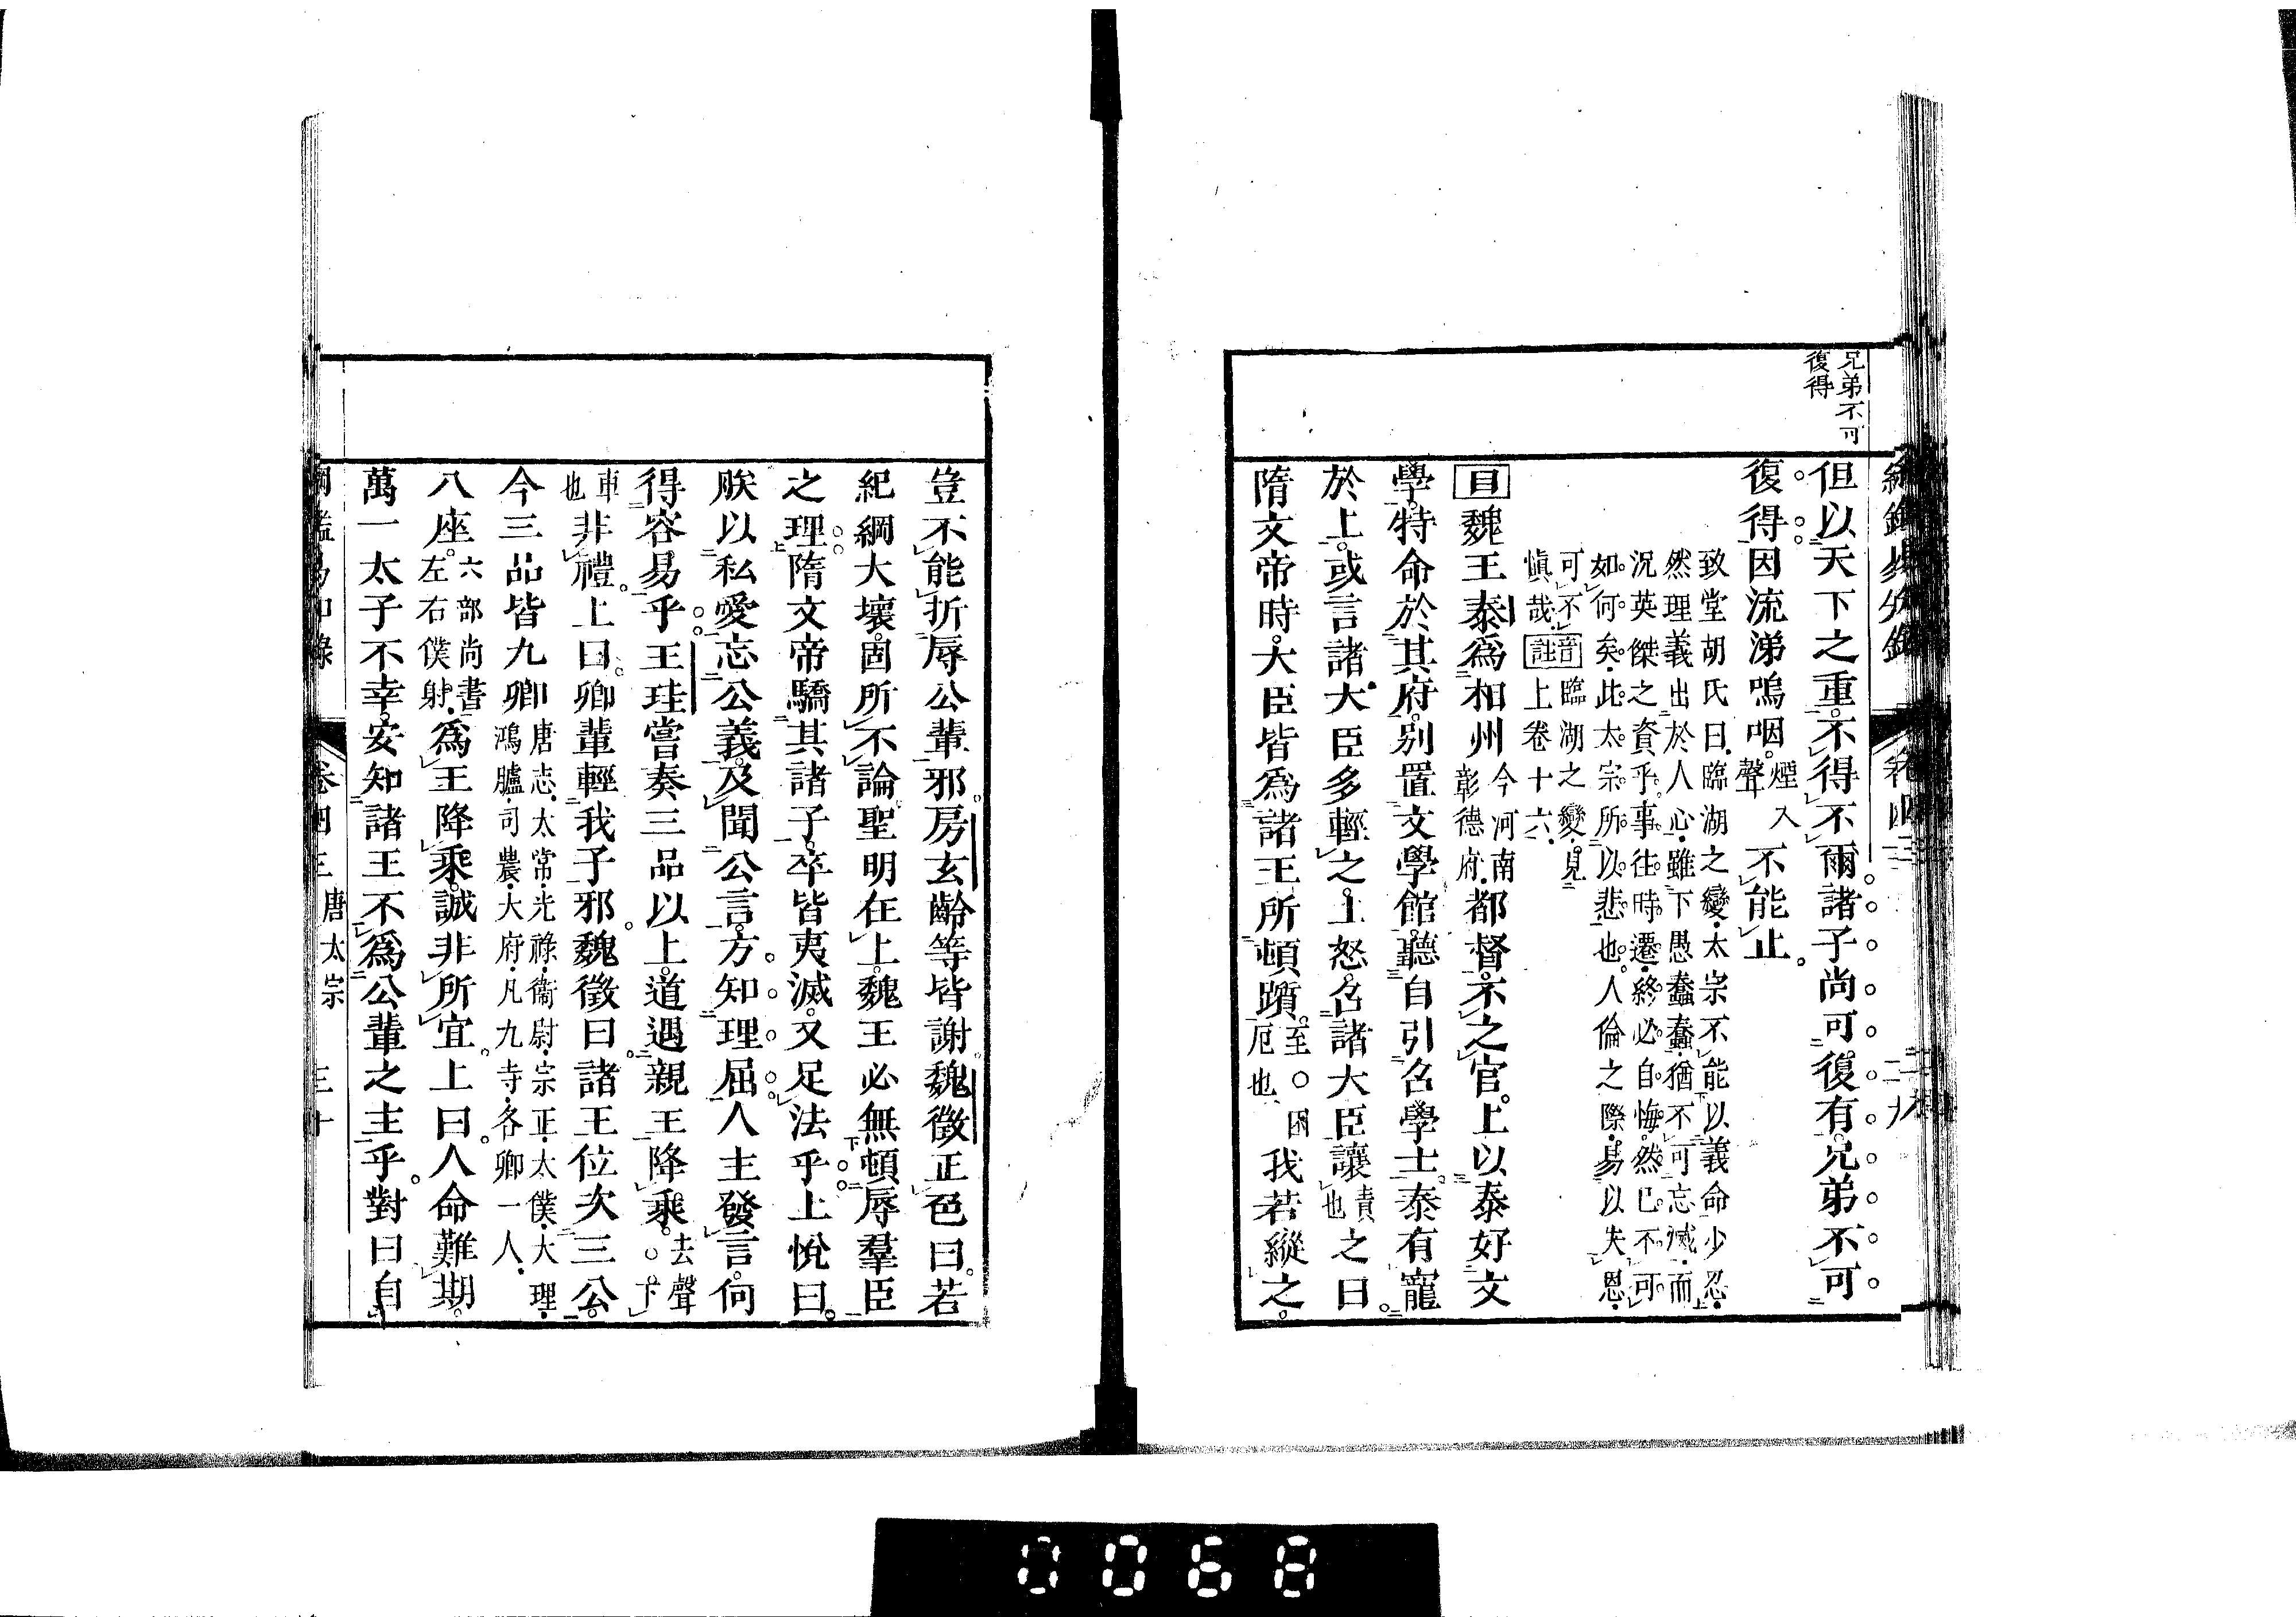 兄弟不可
復得
但以天下之重不得不爾諸子尚可復有兄弟不可
復得因流涕嗚咽煙入聲不能止
致堂胡氏曰臨湖之變太宗不能以義命少忍
然理義出於人心雖下愚蠢蠢猶不可忘滅而
況英傑之資乎事往時遷終必自悔然已不可
如何矣此太宗所以悲也人倫之際易以失恩
可不音臨湖之變見
愼哉註上卷十六
目魏王泰爲相州今河南彰德府都督不之官上以泰好文
學特命於其府別置文學館聽自引名學士泰有寵
於上或言諸大臣多輕之上怒召諸大臣讓責也之曰
隋文帝時大臣皆爲諸王所頓躓至○困厄也我若縱之
豈不能折辱公輩邪房玄齡等皆謝魏徵正色曰若
紀綱大壞固所不論聖明在上魏王必無頓辱羣臣
之理隋文帝驕其諸子卒皆夷滅又足法乎上悅曰
朕以私愛忘公義及聞公言方知理屈人主發言何
得容易乎王珪嘗奏三品以上道遇親王降乘去聲○下
車也非禮上曰卿輩輕我子邪魏徵曰諸王位次三公
今三品皆九卿唐志太常光祿衞尉宗正太僕大理鴻臚司農大府凡九寺各卿一人
八座六部尚書左右僕射爲王降乘誠非所宜上曰人命難期
萬一太子不幸安知諸王不爲公輩之主乎對曰自
卷四 唐太宗 三十
0068